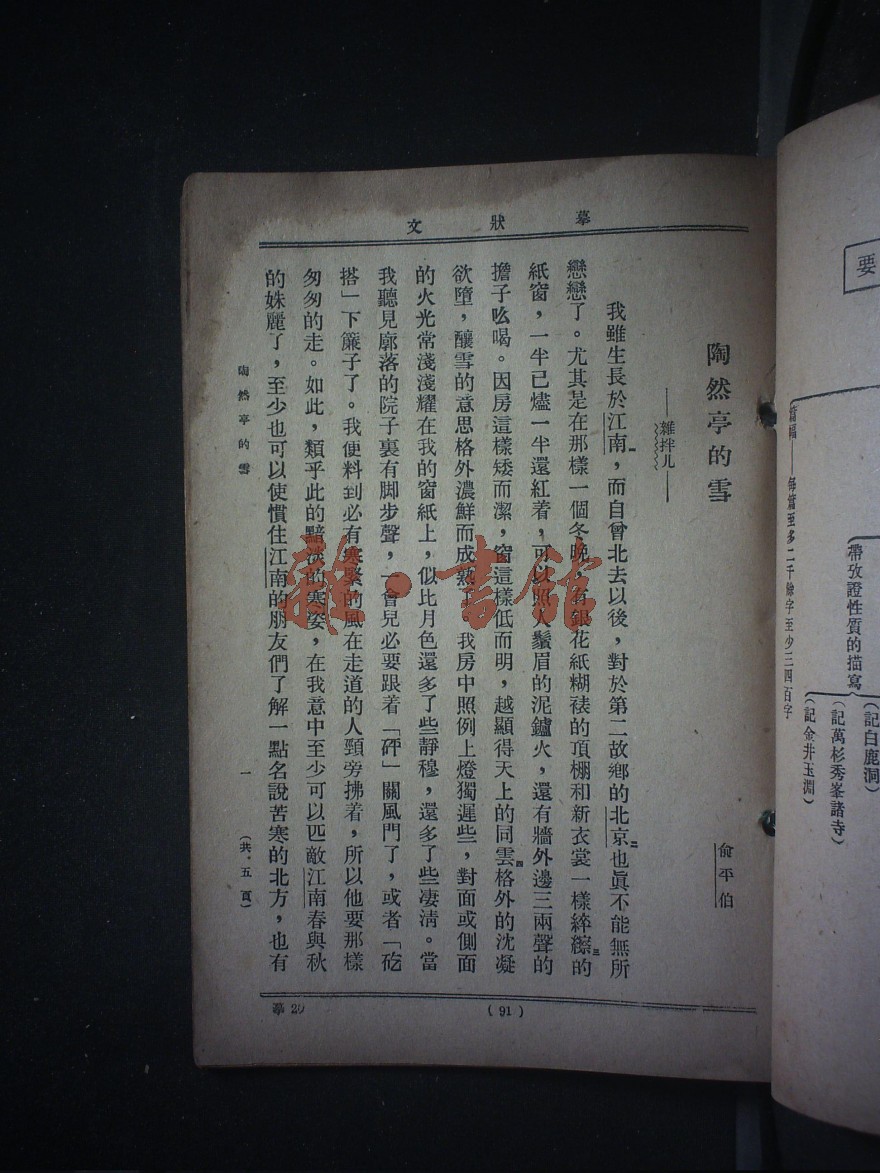 要
篇幅——每篇至多二千餘字至少三四百字
帶攷證性質的描寫
(記白鹿洞)
(記萬杉秀峯諸寺)
(記金井玉淵)
摹狀文
陶然亭的雪
俞平伯
——雜拌儿——
我雖生長於江南,而自曾北去以後,對於第二故鄉的北京也眞不能無所
戀戀了。尤其是在那樣一個冬晚,有銀花紙糊裱的頂棚和新衣裳一樣綷縩的
紙窗,一半已燼一半還紅着,可以照人鬚眉的泥鑪火,還有牆外邊三兩聲的
擔子吆喝。因房這樣矮而潔,窗這樣低而明,越顯得天上的同雲格外的沈凝
欲墮,釀雪的意思格外濃鮮而成熟。我房中照例上燈獨遲些,對面或側面
的火光常淺淺耀在我的窗紙上,似比月色還多了些靜穆,還多了些凄清。當
我聽見廓落的院子裏有脚步聲,一會兒必要跟着「砰」關風門了,或者「矻
搭」下簾子了。我便料到必有寒緊的風在走道的人頸旁拂着,所以他要那樣
匆匆的走。如此,類乎此的黯淡的寒姿,在我意中至少可以匹敵江南春與秋
的姝麗了,至少也可以使慣住江南的朋友們了解一點名說苦寒的北方,也有
陶然亭的雪
一
(共.五頁)
摹 29
(91)
龍·書館